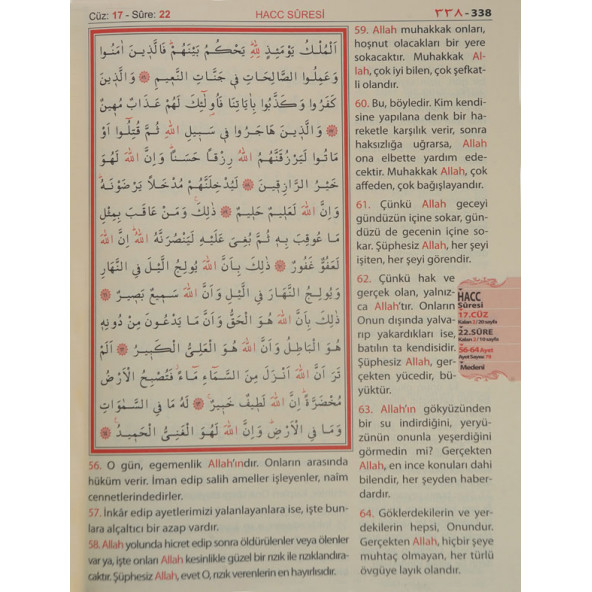 Cüz: 17 - Sûre: 22
HACC SÛRESİ
٣٣٨ - 338
اَلْمُلْكُ يَوْمَئِذٍ لِلّٰهِۜ يَحْكُمُ بَيْنَهُمْۜ فَالَّذ۪ينَ اٰمَنُوا
وَعَمِلُوا الصَّالِحَاتِ ف۪ي جَنَّاتِ النَّع۪يمِ ﴿٥٦﴾ وَالَّذ۪ينَ
كَفَرُوا وَكَذَّبُوا بِاٰيَاتِنَا فَاُو۬لٰٓئِكَ لَهُمْ عَذَابٌ مُه۪ينٌ
﴿٥٧﴾ وَالَّذ۪ينَ هَاجَرُوا ف۪ي سَب۪يلِ اللّٰهِ ثُمَّ قُتِلُٓوا اَوْ
مَاتُوا لَيَرْزُقَنَّهُمُ اللّٰهُ رِزْقًا حَسَنًاۜ وَاِنَّ اللّٰهَ لَهُوَ
خَيْرُ الرَّازِق۪ينَ ﴿٥٨﴾ لَيُدْخِلَنَّهُمْ مُدْخَلًا يَرْضَوْنَهُۜ
وَاِنَّ اللّٰهَ لَعَل۪يمٌ حَل۪يمٌ ﴿٥٩﴾ ذٰلِكَۚ وَمَنْ عَاقَبَ بِمِثْلِ
مَا عُوقِبَ بِه۪ ثُمَّ بُغِيَ عَلَيْهِ لَيَنْصُرَنَّهُ اللّٰهُۜ اِنَّ اللّٰهَ
لَعَفُوٌّ غَفُورٌ ﴿٦٠﴾ ذٰلِكَ بِاَنَّ اللّٰهَ يُولِجُ الَّيْلَ فِي النَّهَارِ
وَيُولِجُ النَّهَارَ فِي الَّيْلِ وَاَنَّ اللّٰهَ سَم۪يعٌ بَص۪يرٌ ﴿٦١﴾
ذٰلِكَ بِاَنَّ اللّٰهَ هُوَ الْحَقُّ وَاَنَّ مَا يَدْعُونَ مِنْ دُونِه۪
هُوَ الْبَاطِلُ وَاَنَّ اللّٰهَ هُوَ الْعَلِيُّ الْكَب۪يرُ ﴿٦٢﴾ اَلَمْ
تَرَ اَنَّ اللّٰهَ اَنْزَلَ مِنَ السَّمَٓاءِ مَٓاءًۘ فَتُصْبِحُ الْاَرْضُ
مُخْضَرَّةًۜ اِنَّ اللّٰهَ لَط۪يفٌ خَب۪يرٌ ﴿٦٣﴾ لَهُ مَا فِي السَّمٰوَاتِ
وَمَا فِي الْاَرْضِۜ وَاِنَّ اللّٰهَ لَهُوَ الْغَنِيُّ الْحَم۪يدُ ﴿٦٤﴾
56. O gün, egemenlik Allah'ındır. Onların arasında
hüküm verir. İman edip salih ameller işleyenler, naîm
cennetlerindedirler.
57. İnkâr edip ayetlerimizi yalanlayanlara ise, işte bun-
lara alçaltıcı bir azap vardır.
58. Allah yolunda hicret edip sonra öldürülenler veya ölenler
var ya, işte onları Allah kesinlikle güzel bir rızık ile rızıklandıra-
caktır. Şüphesiz Allah, evet O, rızık verenlerin en hayırlısıdır.
59. Allah muhakkak onları,
hoşnut olacakları bir yere
sokacaktır. Muhakkak Al-
lah, çok iyi bilen, çok şefkat-
li olandır.
60. Bu, böyledir. Kim kendi-
sine yapılana denk bir ha-
reketle karşılık verir, sonra
haksızlığa uğrarsa, Allah
ona elbette yardım ede-
cektir. Muhakkak Allah, çok
affeden, çok bağışlayandır.
61. Çünkü Allah geceyi
gündüzün içine sokar, gün-
düzü de gecenin içine so-
kar. Şüphesiz Allah, her şeyi
işiten, her şeyi görendir.
62. Çünkü hak ve
gerçek olan, yalnız-
ca Allah'tır. Onların
Onun dışında yalva-
rıp yakardıkları ise,
batılın ta kendisidir.
Şüphesiz Allah, ger-
çekten yücedir, bü-
yüktür.
63. Allah'ın gökyüzünden
bir su indirdiğini, yeryü-
zünün onunla yeşerdiğini
görmedin mi? Gerçekten
Allah, en ince konuları dahi
bilendir, her şeyden haber-
dardır.
64. Göklerdekilerin ve yer-
dekilerin hepsi, Onundur.
Gerçekten Allah, hiçbir şeye
muhtaç olmayan, her türlü
övgüye layık olandır.
HACC
Sûresi
17.CÜZ
22.SÛRE
56-64 Ayet
Medenî